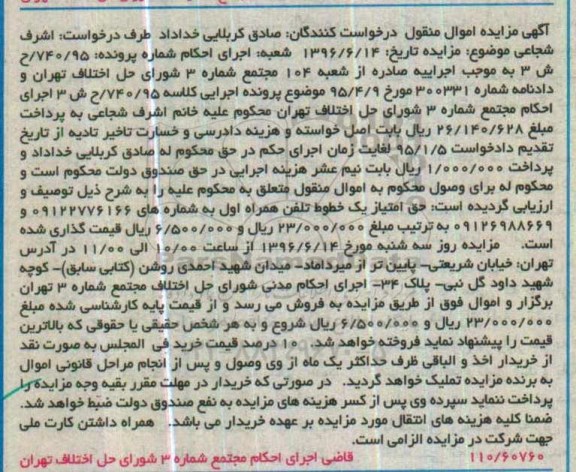 آگهی مزایده اموال منقول  درخواست کنندگان: صادق کربلایی خداداد  طرف درخواست: اشرف
شجاعی موضوع: مزایده تاریخ: ۱۳۹۶/۶/۱۴  شعبه: اجرای احکام شماره پرونده: ۷۴۰/۹۵/ح
ش ۳ به موجب اجراییه صادره از شعبه ۱۰۴ مجتمع شماره ۳ شورای حل اختلاف تهران و
دادنامه شماره ۳۰۰۳۳۱ مورخ ۹۵/۴/۹ موضوع پرونده اجرایی کلاسه ۷۴۰/۹۵/ح ش ۳ اجرای
احکام مجتمع شماره ۳ شورای حل اختلاف تهران محکوم علیه خانم اشرف شجاعی به پرداخت
مبلغ ۲۶/۱۴۰/۶۲۸ ریال بابت اصل خواسته و هزینه دادرسی و خسارت تاخیر تادیه از تاریخ
تقدیم دادخواست ۹۵/۱/۵ لغایت زمان اجرای حکم در حق محکوم له صادق کربلایی خداداد و
پرداخت ۱/۰۰۰/۰۰۰ ریال بابت نیم عشر هزینه اجرایی در حق صندوق دولت محکوم است و
محکوم له برای وصول محکوم به اموال منقول متعلق به محکوم علیه را به شرح ذیل توصیف و
ارزیابی گردیده است: حق امتیاز یک خطوط تلفن همراه اول به شماره های ۰۹۱۲۲۷۷۶۱۶۶ و
۰۹۱۲۶۹۸۸۶۶۹ به ترتیب مبلغ ۲۳/۰۰۰/۰۰۰ ریال و ۶/۵۰۰/۰۰۰ ریال قیمت گذاری شده
است.  مزایده روز سه شنبه مورخ ۱۳۹۶/۶/۱۴ از ساعت ۱۰/۰۰ الی ۱۱/۰۰ در آدرس
تهران: خیابان شریعتی– پایین تر از میرداماد– میدان شهید احمدی روشن (کتابی سابق)– کوچه
شهید داود گل نبی– پلاک ۳۴– اجرای احکام مدنی شورای حل اختلاف مجتمع شماره ۳ تهران
برگزار و اموال فوق از طریق مزایده به فروش می رسد و از قیمت پایه کارشناسی شده مبلغ
۲۳/۰۰۰/۰۰۰ ریال و ۶/۵۰۰/۰۰۰ ریال شروع و به هر شخص حقیقی یا حقوقی که بالاترین
قیمت را پیشنهاد نماید فروخته خواهد شد.  ۱۰ درصد قیمت خرید فی المجلس به صورت نقد
از خریدار اخذ و الباقی ظرف حداکثر یک ماه از وی وصول و پس از انجام مراحل قانونی اموال
به برنده مزایده تملیک خواهد گردید.  در صورتی که خریدار در مهلت مقرر بقیه وجه مزایده را
پرداخت ننماید سپرده وی پس از کسر هزینه های مزایده به نفع صندوق دولت ضبط خواهد شد.
ضمنا کلیه هزینه های انتقال مورد مزایده بر عهده خریدار می باشد.  همراه داشتن کارت ملی
جهت شرکت در مزایده الزامی است.
۱۱۰/۶۰۷۶۰  قاضی اجرای احکام مجتمع شماره ۳ شورای حل اختلاف تهران